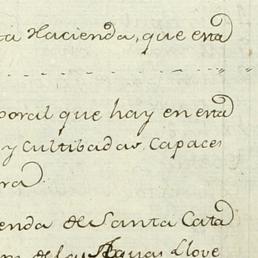 ta Hacienda, que esta
poral que hay en esta
y Cultibadas, Capaces
ra.
enda de Santa Cata
de las Aguas Lluve